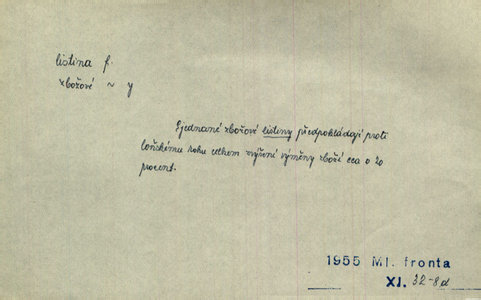 listina f.
zbožové ~ y
Sjednané zbožové listiny předpokládají proti
loňskému roku celkem zvýšení výměny zboží cca o 20
procent.
1955 Ml. fronta
XI. 32-8d